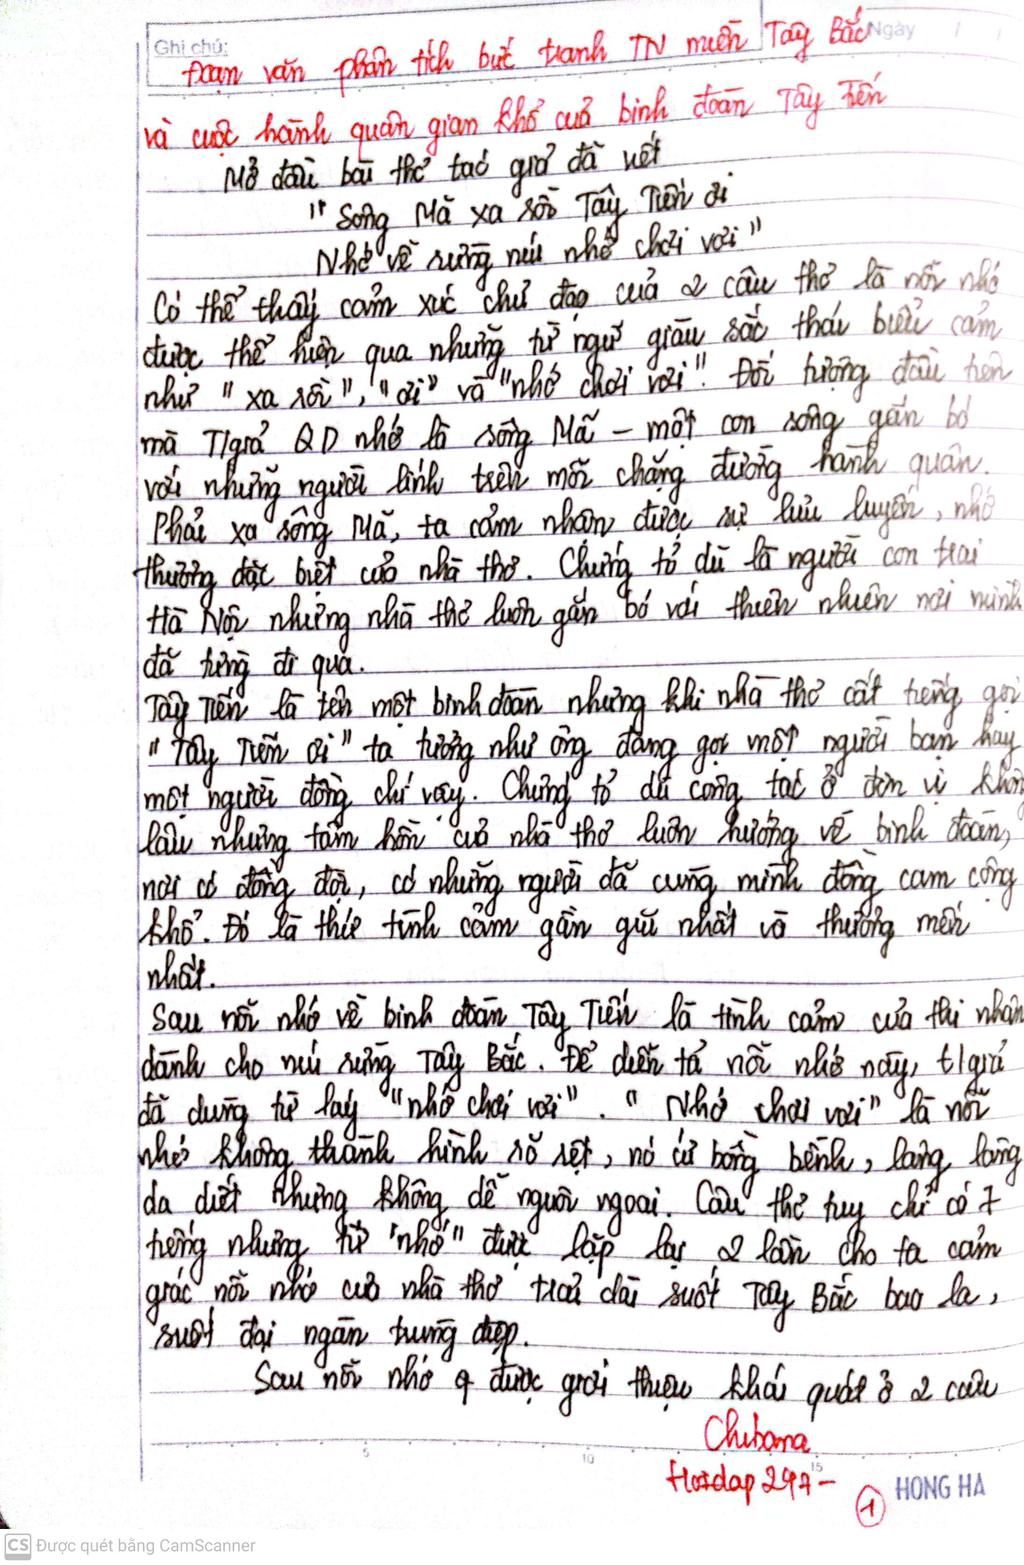 Ghi chú:
Ngày / /
Đoạn văn phân tích bức tranh TN miền Tây Bắc
và cuộc hành quân gian khổ của binh đoàn Tây Tiến
Mở đầu bài thơ tác giả đã viết
"Sông Mã xa rồi Tây Tiến ơi
Nhớ về rừng núi nhớ chơi vơi"
Có thể thấy cảm xúc chủ đạo của 2 câu thơ là nỗi nhớ
được thể hiện qua những từ ngữ giàu sắc thái biểu cảm
như "xa rồi", "ơi" và "nhớ chơi vơi". Đối tượng đầu tiên
mà T/giả QD nhớ là sông Mã – một con sông gắn bó
với những người lính trên mỗi chặng đường hành quân.
Phải xa sông Mã, ta cảm nhận được sự lưu luyến, nhớ
thương đặc biệt của nhà thơ. Chứng tỏ dù là người con trai
Hà Nội nhưng nhà thơ luôn gắn bó với thiên nhiên nơi mình
đã từng đi qua.
Tây Tiến là tên một binh đoàn nhưng khi nhà thơ cất tiếng gọi
"Tây Tiến ơi" ta tưởng như ông đang gọi một người bạn hay
một người đồng chí vậy. Chứng tỏ dù công tác ở đơn vị không
lâu nhưng tâm hồn của nhà thơ luôn hướng về binh đoàn,
nơi có đồng đội, có những người đã cùng mình đồng cam cộng
khổ. Đó là thứ tình cảm gần gũi nhất và thương mến
nhất.
Sau nỗi nhớ về binh đoàn Tây Tiến là tình cảm của thi nhân
dành cho núi rừng Tây Bắc. Để diễn tả nỗi nhớ này, t/giả
đã dùng từ láy "nhớ chơi vơi". "Nhớ chơi vơi" là nỗi
nhớ không thành hình rõ rệt, nó cứ bồng bềnh, lâng lâng
da diết nhưng không dễ nguôi ngoai. Câu thơ tuy chỉ có 7
tiếng nhưng từ "nhớ" được lặp lại 2 lần cho ta cảm
giác nỗi nhớ của nhà thơ trải dài suốt Tây Bắc bao la,
suốt đại ngàn trùng điệp.
Sau nỗi nhớ q được giới thiệu khái quát ở 2 câu
Chibana
5 10 15
HONG HA
1
CS Được quét bằng CamScanner